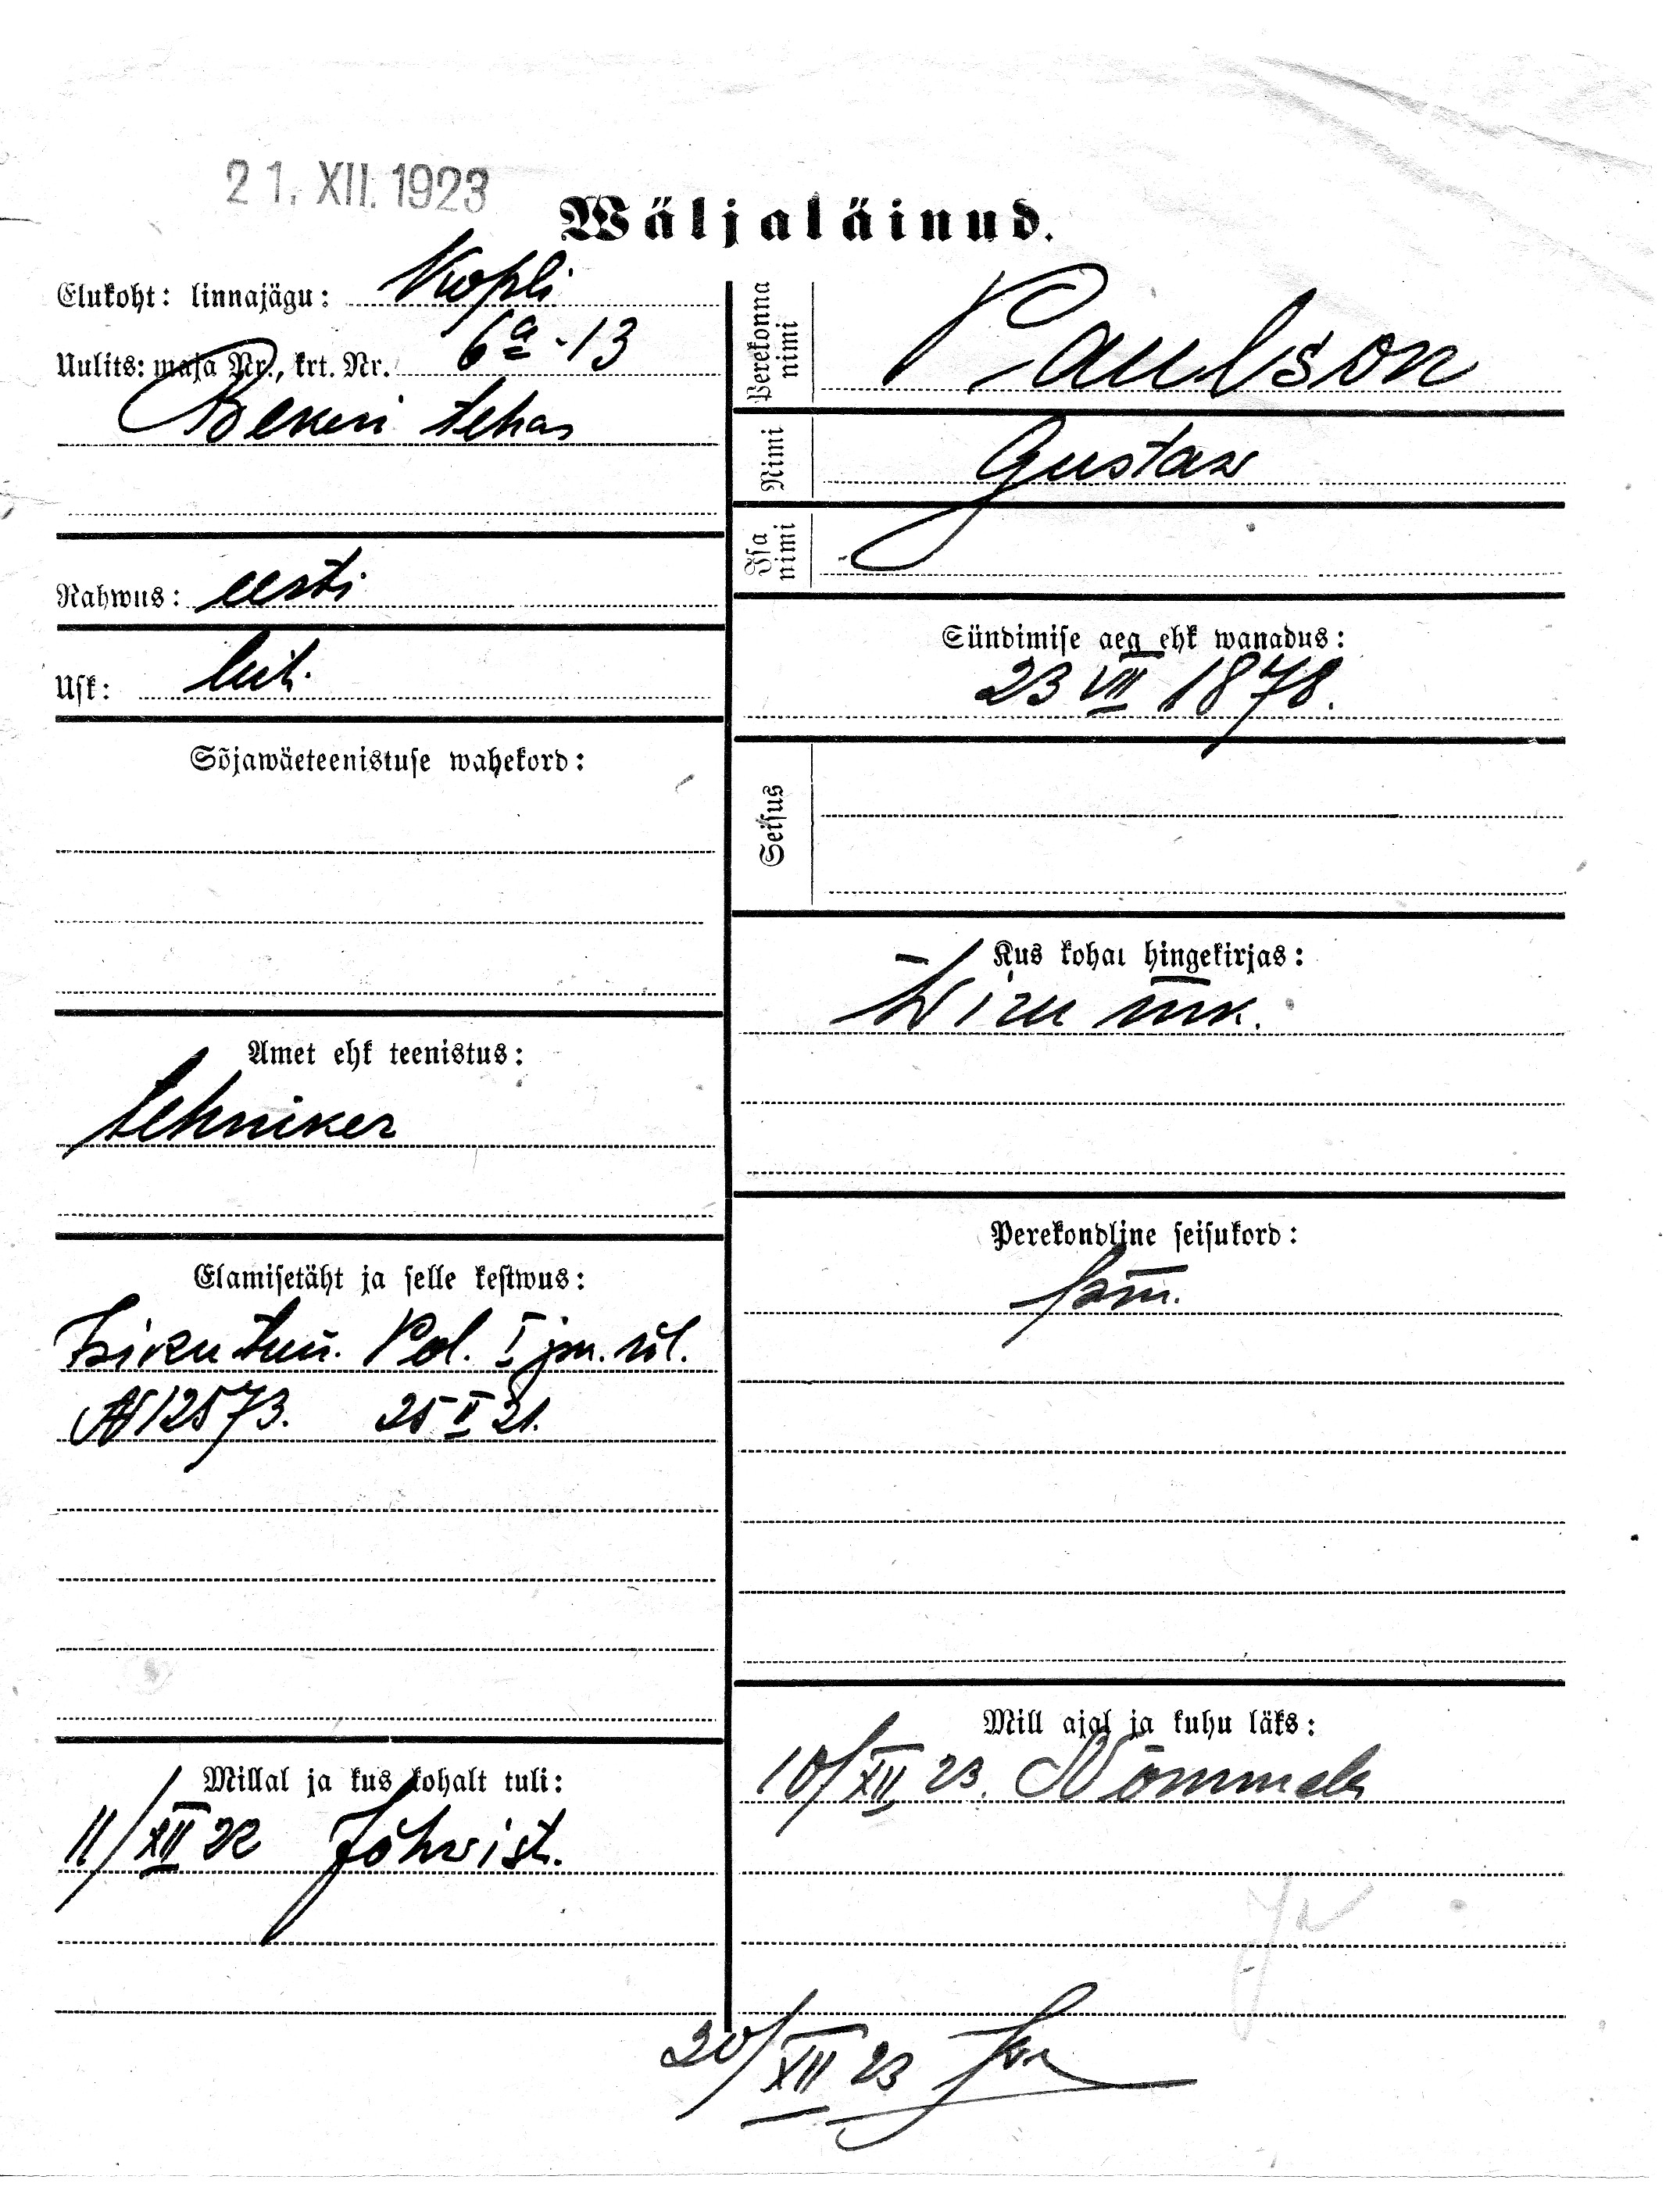 21. XII. 1923
Wäljaläinud.
Elukoht: linnajägu: Kopli
Uulits: maja Nr., krt. Nr. 6a-13
Bekeri tehas
Rahwus: eesti
Usk: lut.
Sõjawäeteenistuse wahekord:
Amet ehk teenistus:
tehniker
Elamisetäht ja selle kestwus:
Isiku tun. Pol. I jsk. ül.
№ 12573. 25 II 21.
Millal ja kus kohalt tuli:
11/XII 22 Jõhwist.
Perekonna nimi Paulson
Nimi Gustaw
Isa nimi
Sündimise aeg ehk wanadus:
23 VII 1878.
Seisus
Kus kohal hingekirjas:
Wiru mk.
Perekondline seisukord:
Mill ajal ja kuhu läks:
10/XII 23. Nõmmele
20/XII 23